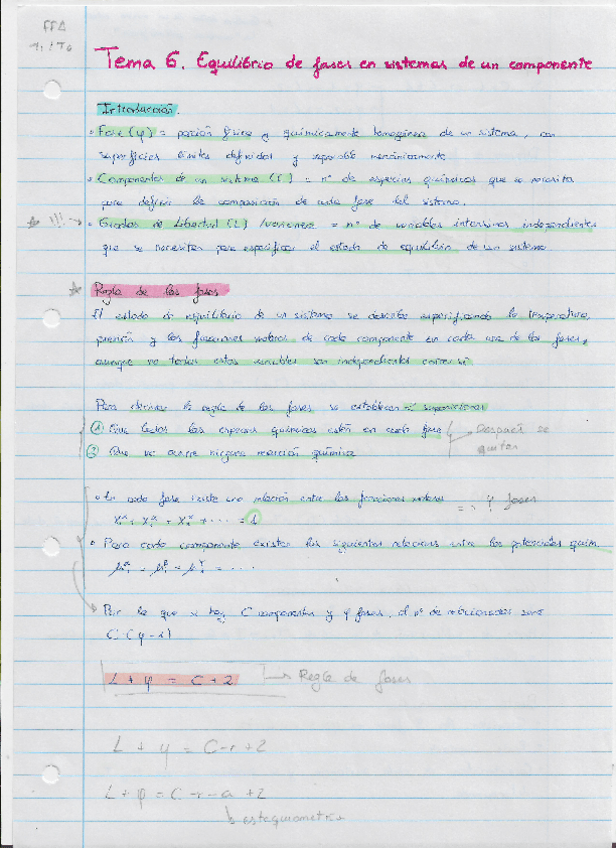 FFA
Tema 6. Equilibrio de fases en sistemas de un componente
Introducción.
• Fase (φ) = porción física y químicamente homogénea de un sistema, con
superficies límites definidas y separable mecánicamente
• Componentes de un sistema (C) = nº de especies químicas que se necesita
para definir la composición de cada fase del sistema.
!!! → • Grados de libertad (L) / varianza = nº de variables intensivas independientes
que se necesitan para especificar el estado de equilibrio de un sistema
Regla de las fases
El estado de equilibrio de un sistema se describe especificando la temperatura,
presión y las fracciones molares de cada componente en cada una de las fases,
aunque no todas estas variables son independientes entre sí
Para derivar la regla de las fases se establecen 2 suposiciones
① Que todas las especies químicas están en cada fase
Después se
quitan
② Que no ocurre ninguna reacción química
• En cada fase existe una relación entre las fracciones molares
= φ fases
= 1
• Para cada componente existen las siguientes relaciones entre los potenciales quím.
Por lo que si hay C componentes y φ fases, el nº de relaciones será
C·(φ-1)
L + φ = C + 2 → Regla de fases
L + φ = C-r+2
L + φ = C-r-a+2
↳ estequiometría